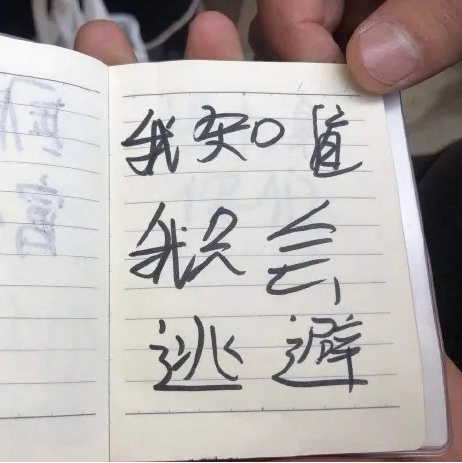 我知道
我只会
逃避